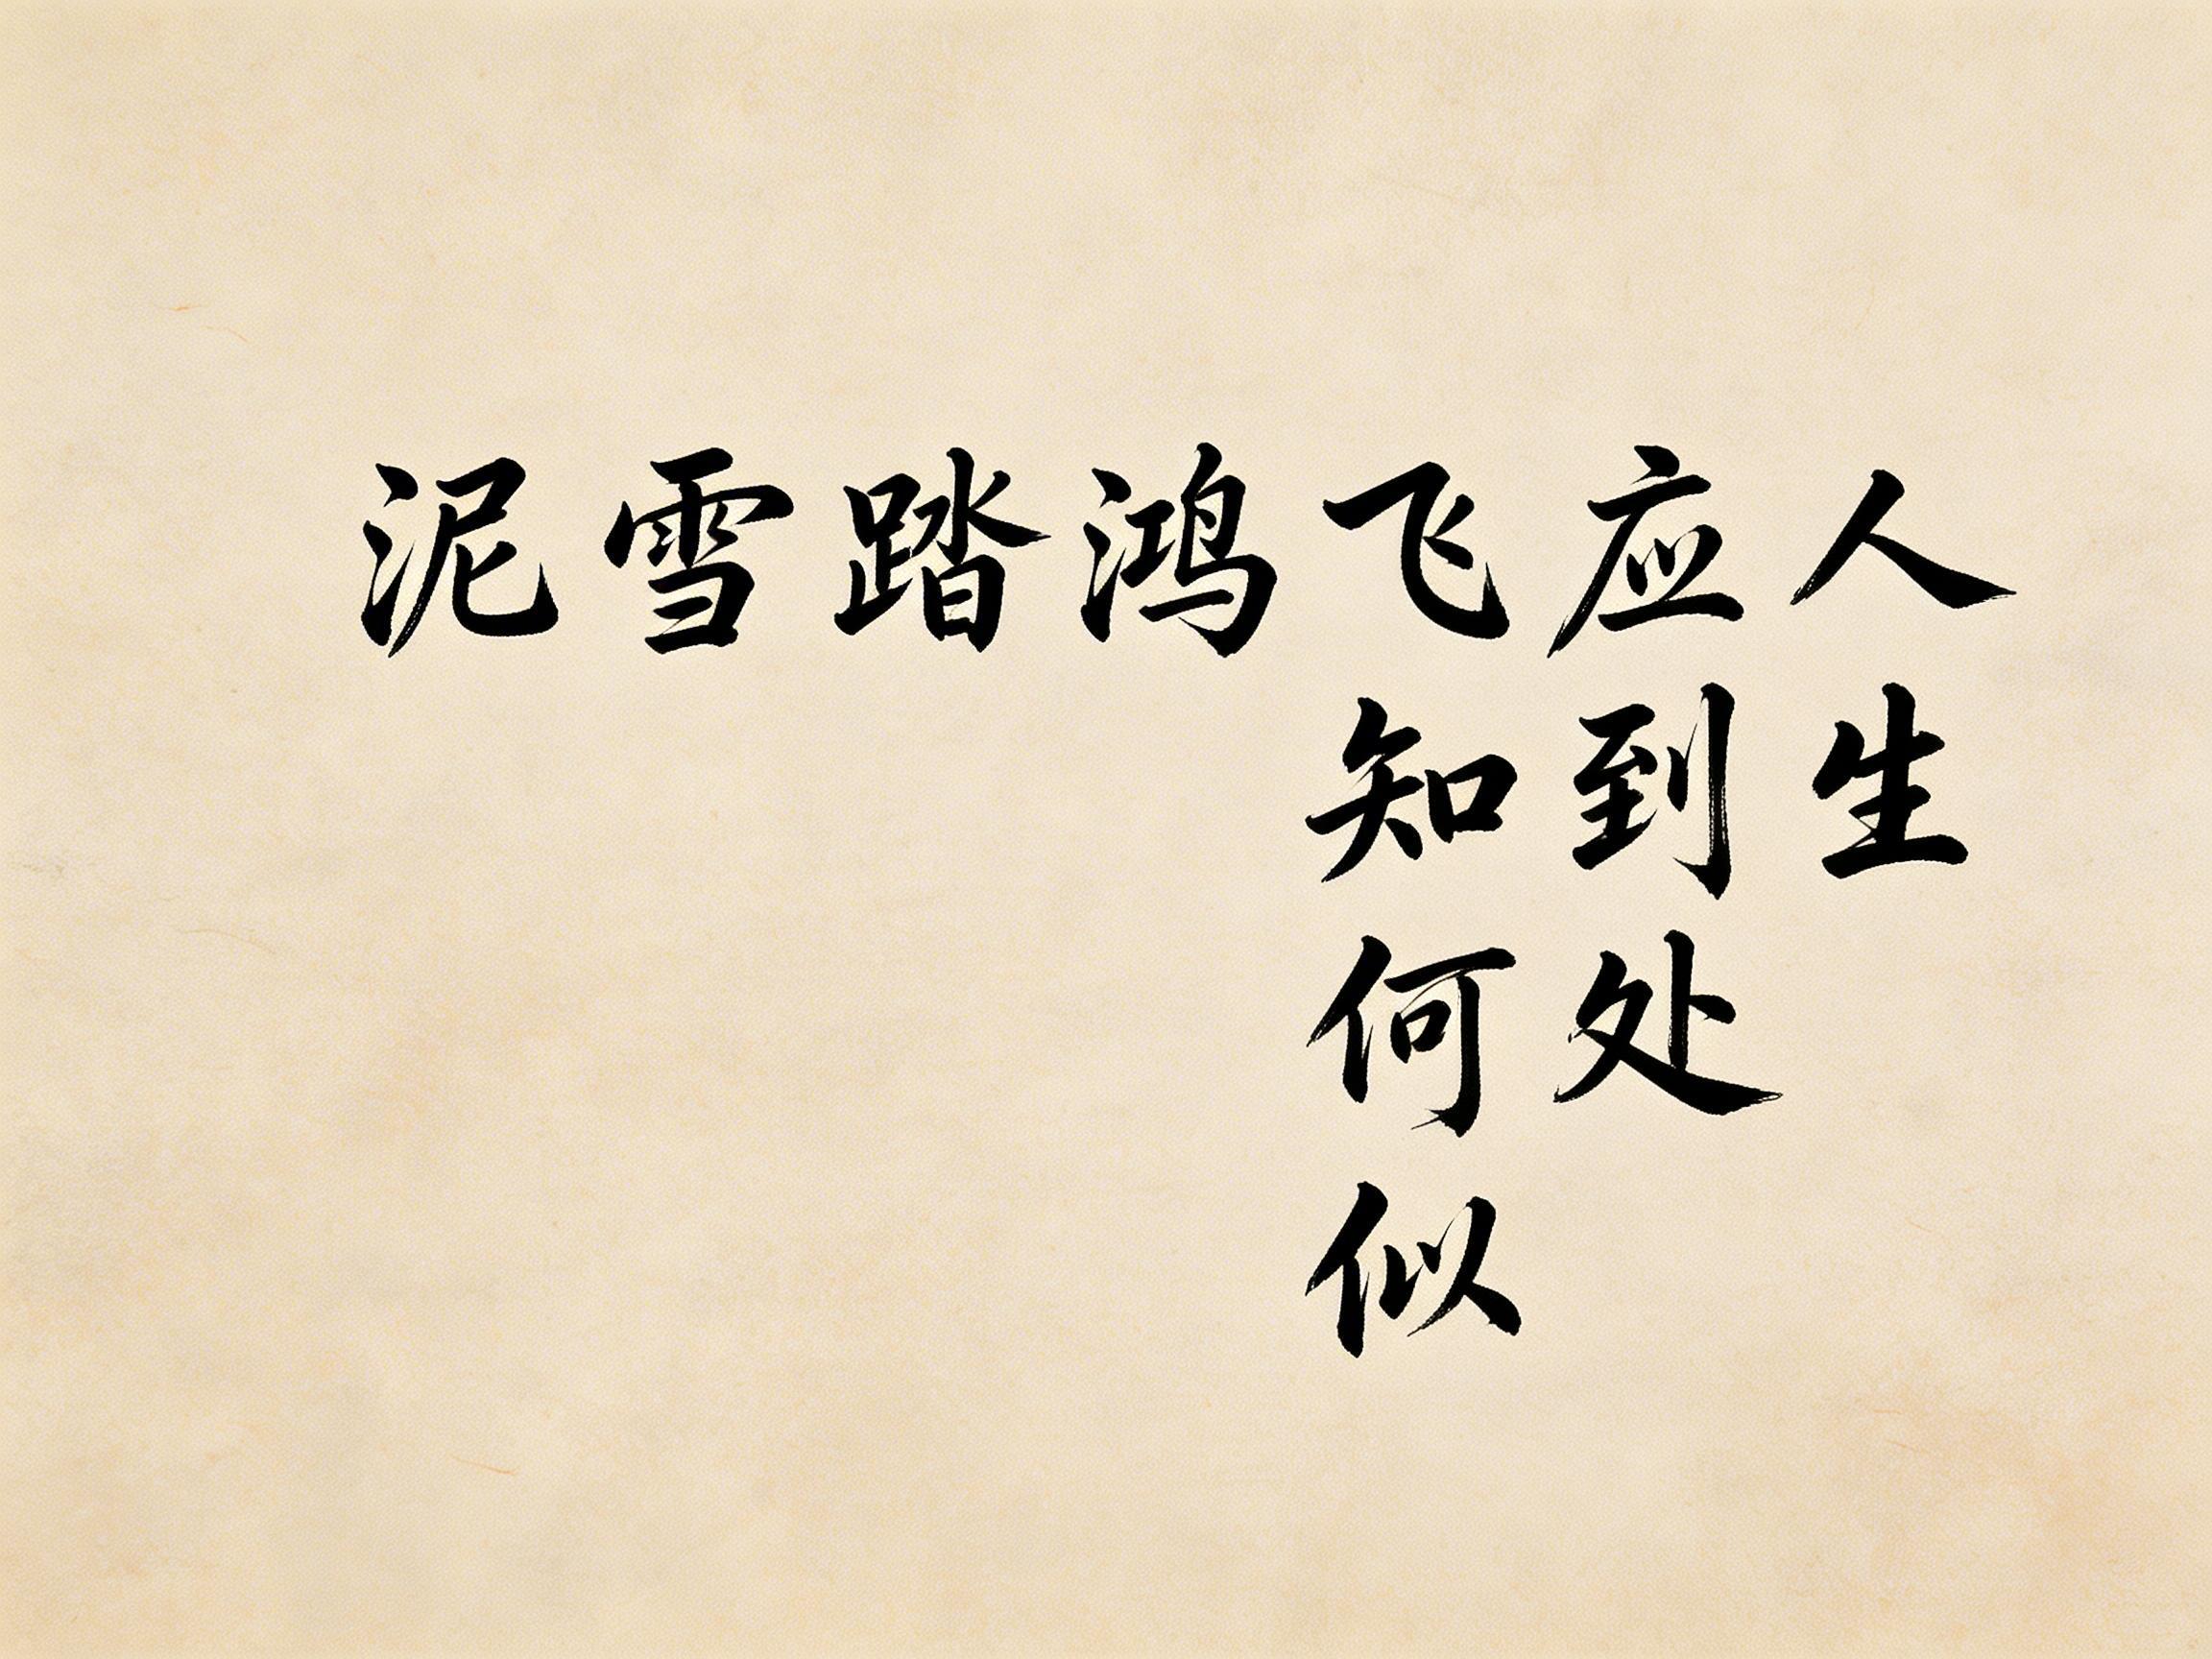 人生
应到处
飞知何似
鸿
踏
雪
泥